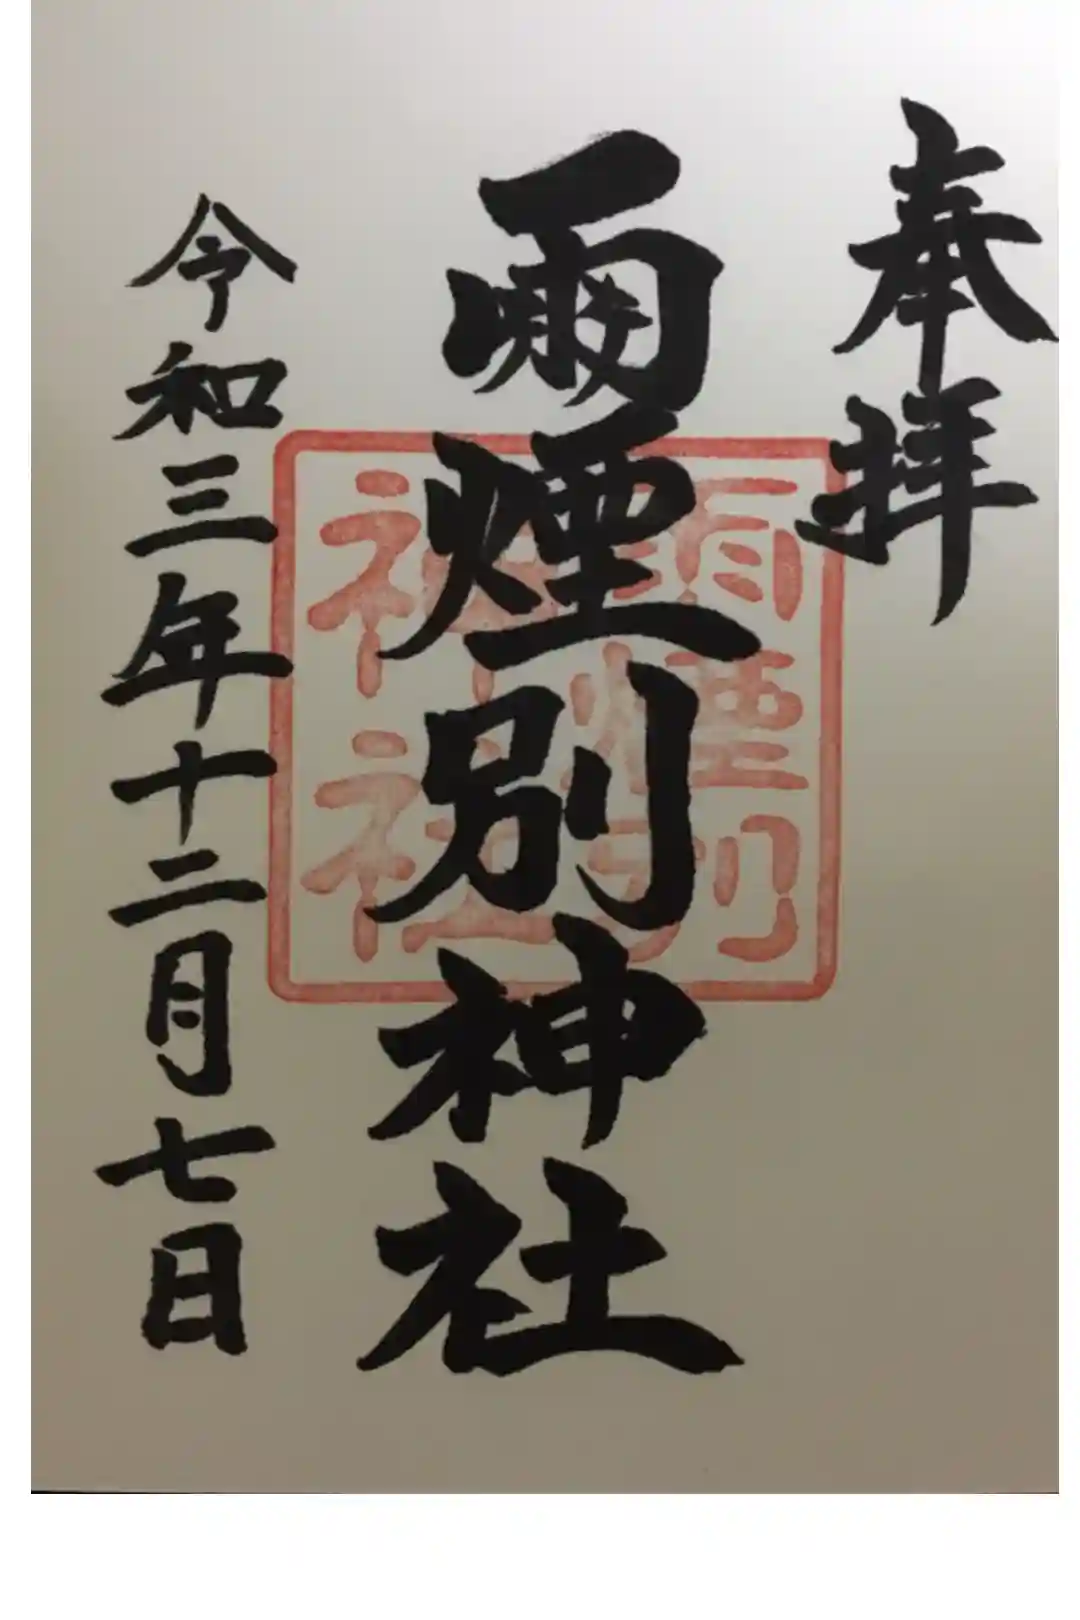 奉拝
雨煙別神社
雨煙別
神社
令和三年十二月七日